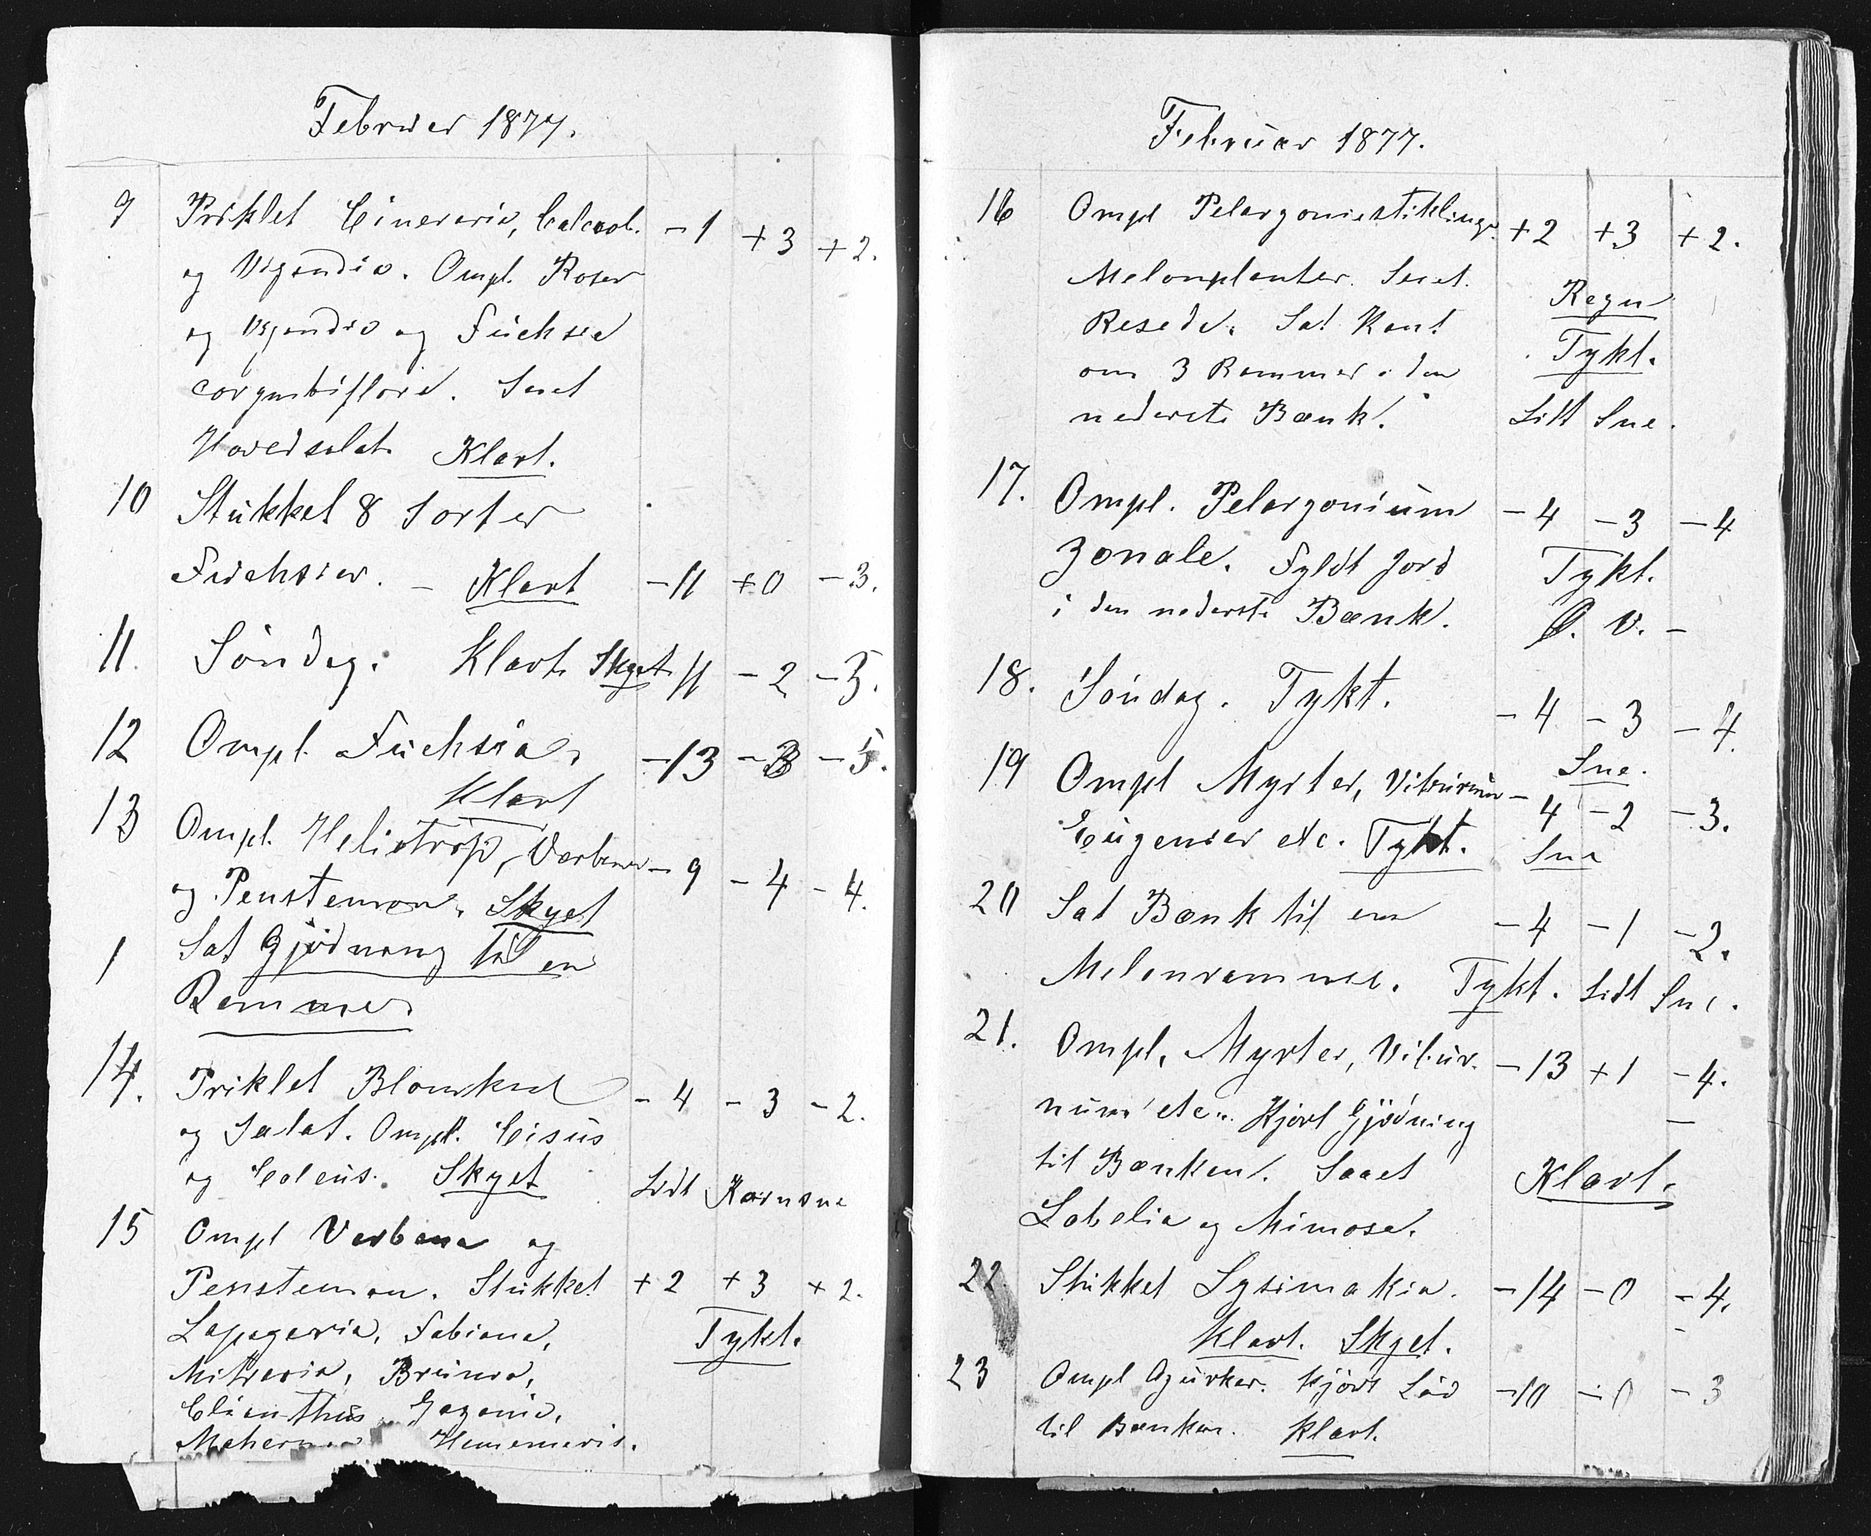 Februar 1877.
9 Priklet Cineraria, Calceol. -1 +3 +2.
og Vigandia. Ompl. Roser
og Vigandia og Fuchsia
corymbiflora. Saaet
Hovedsalat. Klart.
10 Stukket 8 Sorter
Fuchsier. - Klart -11 +0 -3.
11. Söndag. Klart. Skyet. -11 -2 -5.
12 Ompl. Fuchsia. -13 -3 -5.
Klart
13 Ompl. Heliotrop, Verbena -9 -4 -4.
og Penstemon. Skyet
1 Sat Gjödning til en
Ramme.
14. Priklet Blomkaal -4 -3 -2.
og Salat. Ompl. Cisus
og Coleus. Skyet Lidt Kornsne
15 Ompl Verbena og
Penstemon. Stukket +2 +3 +2.
Lapageria, Fabiana, Tykt.
Mitraria, Brunia,
Clianthus Gazania,
Mahernia Hememeris.
Februar 1877.
16 Ompl Pelargoniestiklinge. +2 +3 +2.
Melonplanter. Saaet. Regn
Reseda. Sat Kant Tykt.
om 3 Rammer i den
nederste Bænk. Lidt Sne.
17. Ompl. Pelargonium -4 -3 -4
Zonale. Fyldt Jord Tykt.
i den nederste Bænk. O. V. -
18. Söndag. Tykt. -4 -3 -4.
Sne.
19 Ompl Myrter, Viburnum -4 -2 -3.
Eugenier etc. Tykt. Sne
20 Sat Bænk til en -4 -1 -2.
Melonramme. Tykt. Lidt Sne.
21. Ompl. Myrter, Vibur- -13 +1 -4.
num etc. Kjört Gjödning
til Bænken. Saaet Klart.
Lobelia og Mimosa.
22 Stukket Lysimakia. -14 -0 -4.
Klart. Skyet.
23 Ompl Agurker. Kjört -10 -0 -3
til Bænken. Klart.